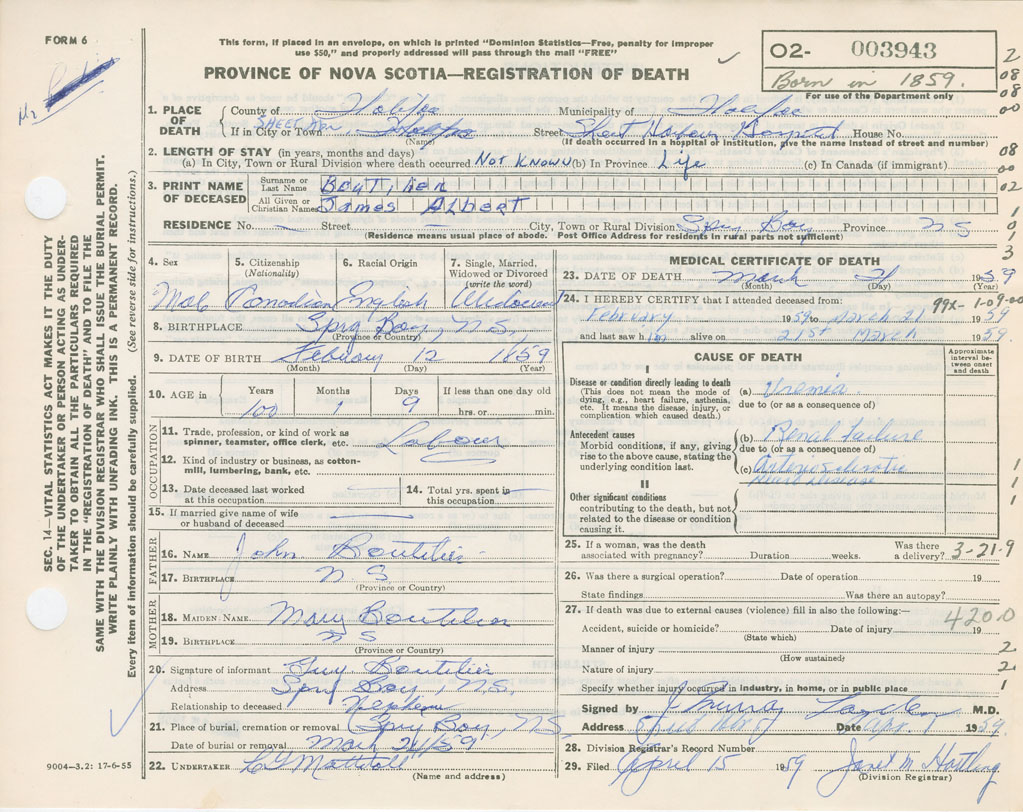 FORM 6
This form, if placed in an envelope, on which is printed "Dominion Statistics—Free, penalty for improper
use $50," and properly addressed will pass through the mail "FREE"
PROVINCE OF NOVA SCOTIA—REGISTRATION OF DEATH
02- 003943
Born in 1859.
For use of the Department only
1. PLACE OF DEATH
County of Halifax Municipality of Halifax
If in City or Town Street Sheet Harbour Hospital House No.
(Name) (If death occurred in a hospital or institution, give the name instead of street and number)
2. LENGTH OF STAY (in years, months and days)
(a) In City, Town or Rural Division where death occurred Not Known (b) In Province Life (c) In Canada (if immigrant)
3. PRINT NAME OF DECEASED
Surname or Last Name Boutilier
All Given or Christian Names James Albert
RESIDENCE No. Street City, Town or Rural Division Spry Bay Province NS
(Residence means usual place of abode. Post Office Address for residents in rural parts not sufficient)
4. Sex 5. Citizenship (Nationality) 6. Racial Origin 7. Single, Married, Widowed or Divorced (write the word)
Male Canadian English Widower
8. BIRTHPLACE Spry Bay, N.S.
(Province or Country)
9. DATE OF BIRTH February 12 1859
(Month) (Day) (Year)
10. AGE in Years Months Days If less than one day old
100 1 9 hrs. or min.
OCCUPATION
11. Trade, profession, or kind of work as spinner, teamster, office clerk, etc. Labour
12. Kind of industry or business, as cotton-mill, lumbering, bank, etc.
13. Date deceased last worked at this occupation 14. Total yrs. spent in this occupation
15. If married give name of wife or husband of deceased
FATHER
16. NAME John Boutilier
17. BIRTHPLACE N S
(Province or Country)
MOTHER
18. MAIDEN NAME Mary Boutilier
19. BIRTHPLACE N S
(Province or Country)
20. Signature of informant Guy Boutilier
Address Spry Bay, N.S.
Relationship to deceased Nephew
21. Place of burial, cremation or removal Spry Bay, N.S.
Date of burial or removal March 24/59
22. UNDERTAKER
(Name and address)
9004—3.2: 17-6-55
MEDICAL CERTIFICATE OF DEATH
23. DATE OF DEATH March 21 1959
(Month) (Day) (Year)
24. I HEREBY CERTIFY that I attended deceased from:
February 1959 to March 21 1959
and last saw him alive on 21st March 1959
CAUSE OF DEATH
Approximate interval between onset and death
I
Disease or condition directly leading to death
(This does not mean the mode of dying, e.g., heart failure, asthenia, etc. It means the disease, injury, or complication which caused death.)
(a) Uremia
due to (or as a consequence of)
Antecedent causes
Morbid conditions, if any, giving rise to the above cause, stating the underlying condition last.
(b) Renal failure
due to (or as a consequence of)
(c) Arteriosclerotic
Heart Disease
II
Other significant conditions
contributing to the death, but not related to the disease or condition causing it.
25. If a woman, was the death associated with pregnancy? Duration weeks. Was there a delivery?
3-21-9
26. Was there a surgical operation? Date of operation 19
State findings Was there an autopsy?
27. If death was due to external causes (violence) fill in also the following:—
4200
Accident, suicide or homicide? Date of injury 19
(State which)
Manner of injury
(How sustained)
Nature of injury
Specify whether injury occurred in industry, in home, or in public place
Signed by M.D.
Address Date Apr. 1 1959
28. Division Registrar's Record Number
29. Filed April 15 1959 Janet M Hartling
(Division Registrar)
SEC. 14—VITAL STATISTICS ACT MAKES IT THE DUTY
OF THE UNDERTAKER OR PERSON ACTING AS UNDER-
TAKER TO OBTAIN ALL THE PARTICULARS REQUIRED
IN THE "REGISTRATION OF DEATH" AND TO FILE THE
SAME WITH THE DIVISION REGISTRAR WHO SHALL ISSUE THE BURIAL PERMIT.
WRITE PLAINLY WITH UNFADING INK. THIS IS A PERMANENT RECORD.
Every item of information should be carefully supplied. (See reverse side for instructions.)